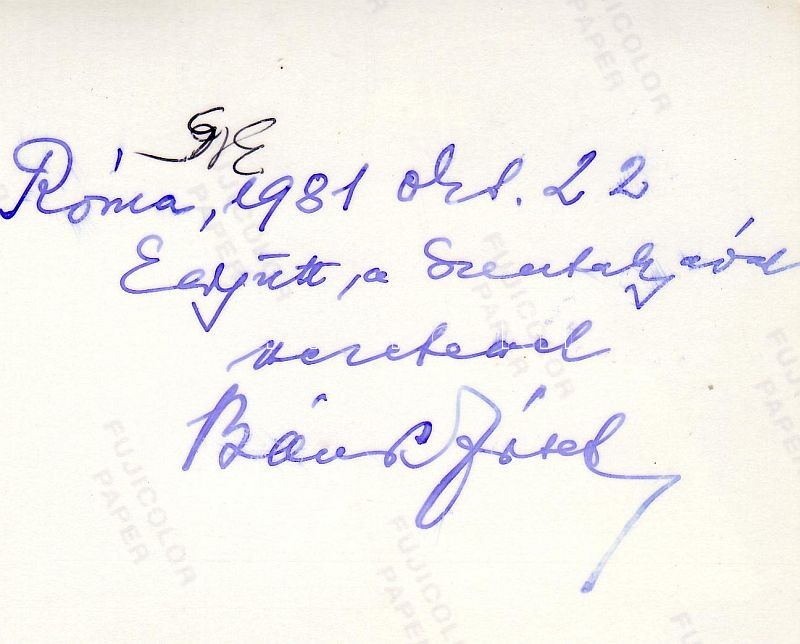 Róma, 1981 okt. 22
Együtt, a Szentatyával
szeretettel
Bánk József
FUJICOLOR
PAPER
FUJICOLOR
PAPER
FUJICOLOR
PAPER
FUJICOLOR
PAPER
FUJICOLOR
PAPER
FUJICOLOR
PAPER